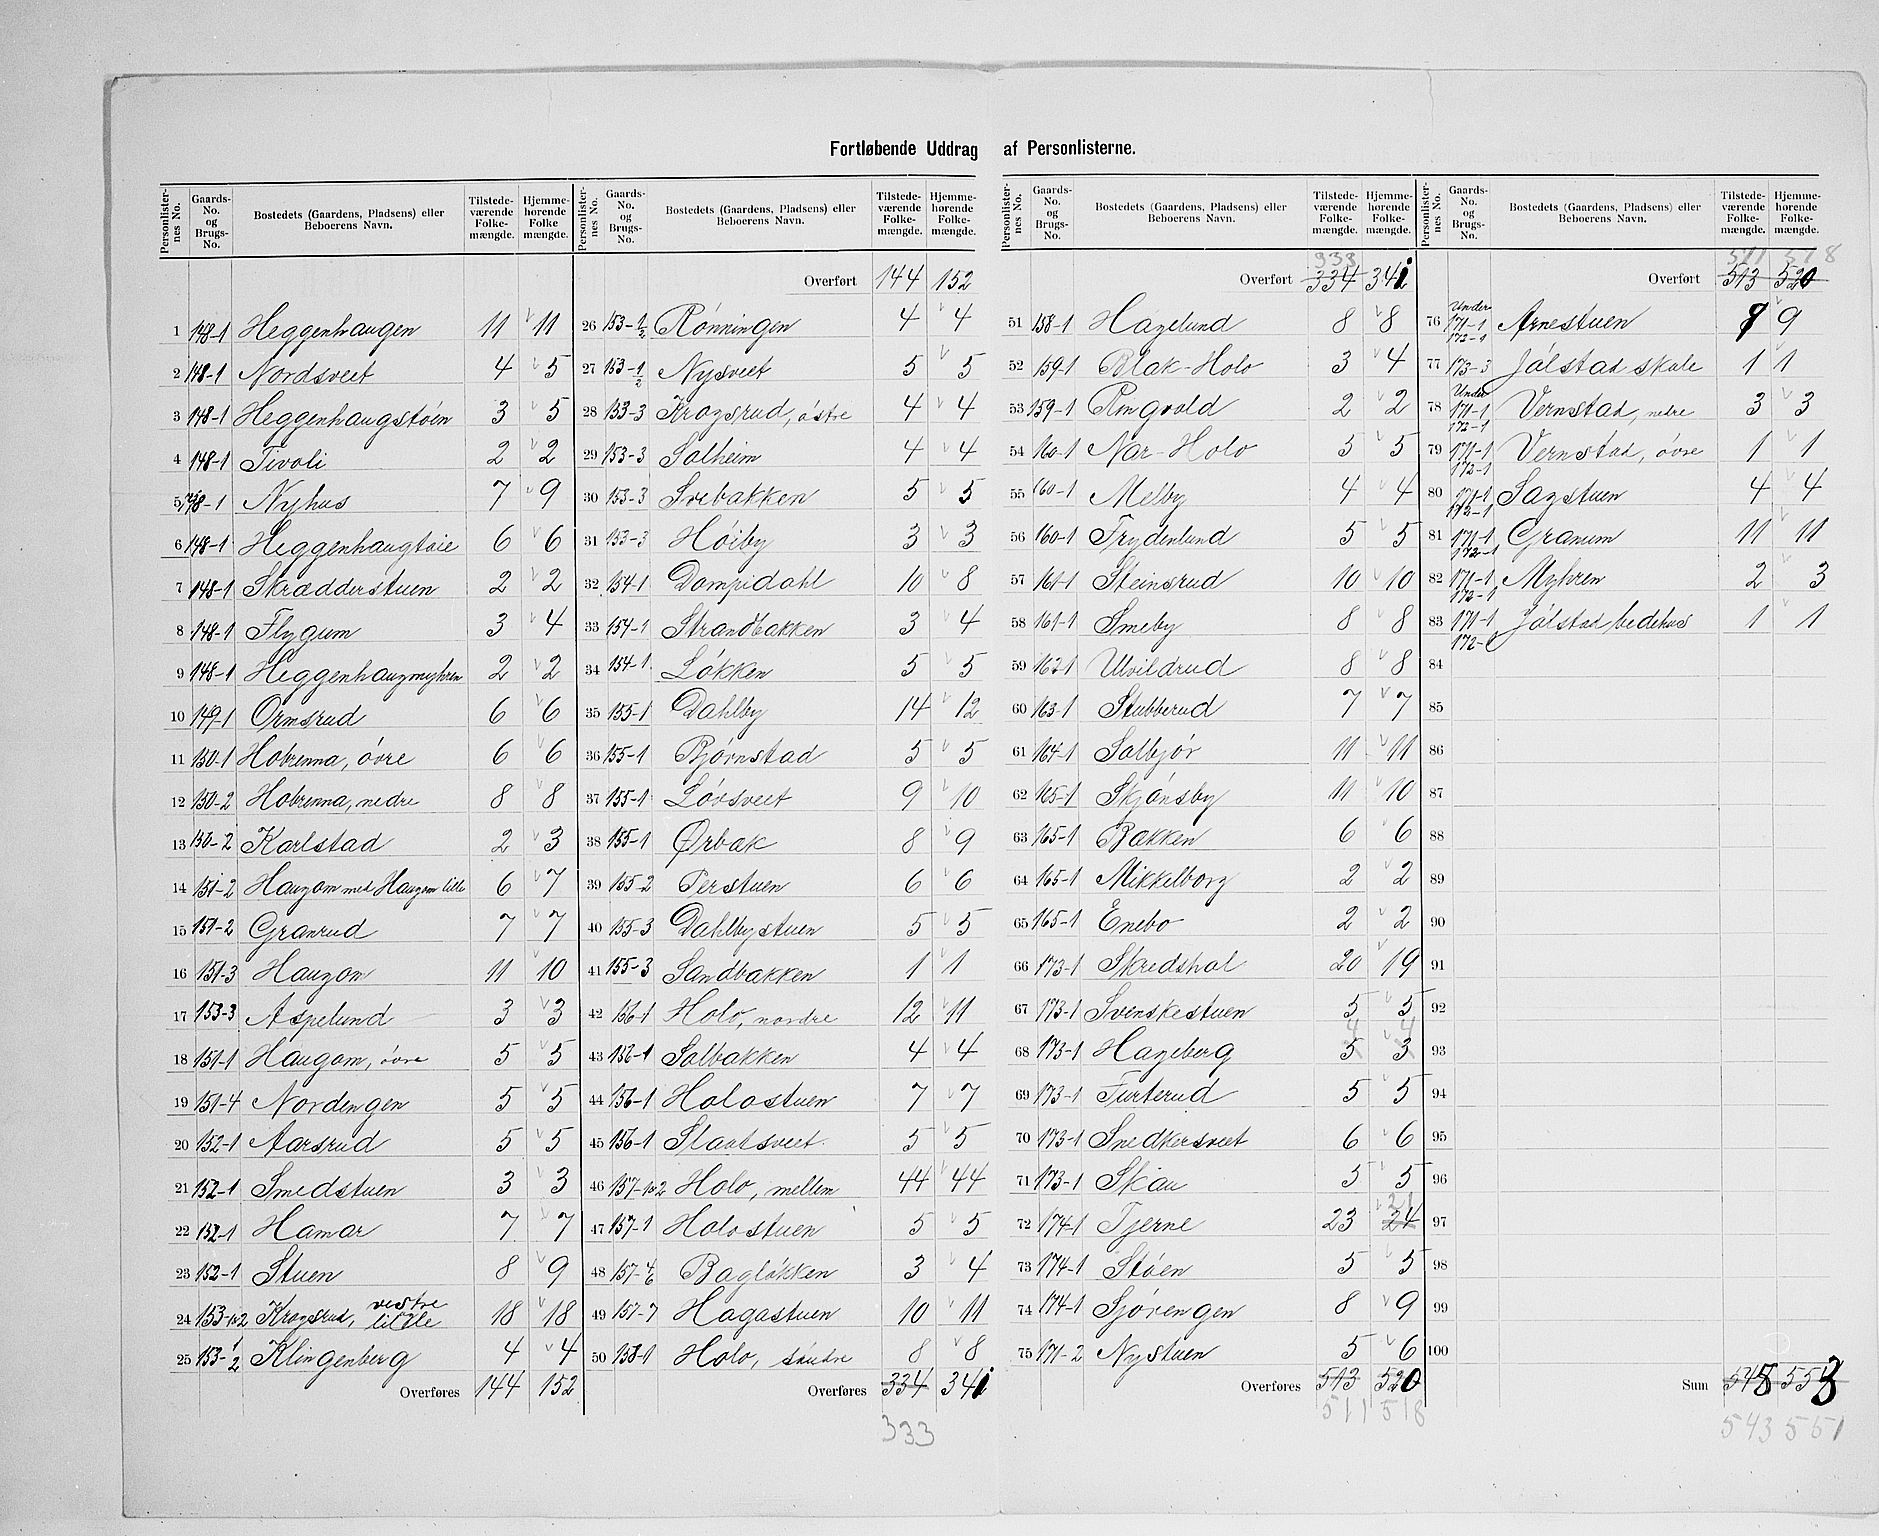 Fortløbende Uddrag af Personlisterne.
Personlisternes No. Gaards-No. og Brugs-No. Bostedets (Gaardens, Pladsens) eller Beboerens Navn. Tilstedeværende Folkemængde. Hjemmehørende Folkemængde.
1 148-1 Heggenhaugen 11 11
2 148-1 Nordsveet 4 5
3 148-1 Heggenhaugstøen 3 5
4 148-1 Tivoli 2 2
5 148-1 Nyhus 7 9
6 148-1 Heggenhaugtaie 6 6
7 148-1 Skrædderstuen 2 2
8 148-1 Flygum 3 4
9 148-1 Heggenhaugmyhren 2 2
10 149-1 Ormsrud 6 6
11 150-1 Hobrenna, øvre 6 6
12 150-2 Hobrenna, nedre 8 8
13 150-2 Karlstad 2 3
14 151-2 Haugom med Haugom lille 6 7
15 151-2 Granrud 7 7
16 151-3 Haugom 11 10
17 153-3 Aspelund 3 3
18 151-1 Haugom, øvre 5 5
19 151-4 Nordengen 5 5
20 152-1 Aarsrud 5 5
21 152-1 Smedstuen 3 3
22 152-1 Hamar 7 7
23 152-1 Stuen 8 9
24 153-1o2 Krogsrud, vestre lille 18 18
25 153-1/2 Klingenberg 4 4
Overføres 144 152
Personlisternes No. Gaards-No. og Brugs-No. Bostedets (Gaardens, Pladsens) eller Beboerens Navn. Tilstedeværende Folkemængde. Hjemmehørende Folkemængde.
Overført 144 152
26 153-1/2 Rønningen 4 4
27 153-1/2 Nysveet 5 5
28 153-3 Krogsrud, østre 4 4
29 153-3 Solheim 4 4
30 153-3 Svebakken 5 5
31 153-3 Høiby 3 3
32 154-1 Dampidahl 10 8
33 154-1 Strandbakken 3 4
34 154-1 Løkken 5 5
35 155-1 Dahlby 14 12
36 155-1 Bjørnstad 5 5
37 155-1 Løvsveet 9 10
38 155-1 Ørbæk 8 9
39 155-2 Perstuen 6 6
40 155-3 Dahlbystuen 5 5
41 155-3 Sandbakken 1 1
42 156-1 Holo, nordre 12 11
43 156-1 Solbakken 4 4
44 156-1 Holostuen 7 7
45 156-1 Slaatsveet 5 5
46 157-1o2 Holo, mellem 44 44
47 157-1 Holostuen 5 5
48 157-4/6 Bagløkken 3 4
49 157-7 Hagastuen 10 11
50 158-1 Holo, søndre 8 8
Overføres 334 341
333
Personlisternes No. Gaards-No. og Brugs-No. Bostedets (Gaardens, Pladsens) eller Beboerens Navn. Tilstedeværende Folkemængde. Hjemmehørende Folkemængde.
333
Overført 334 341
51 158-1 Hagelund 8 8
52 159-1 Blak-Holo 3 4
53 159-1 Ringvold 2 2
54 160-1 Nar-Holo 5 5
55 160-1 Melby 4 4
56 160-1 Frydenlund 5 5
57 161-1 Steinsrud 10 10
58 161-1 Smeby 8 8
59 162-1 Ulvildrud 8 8
60 163-1 Stubberud 7 7
61 164-1 Solbjør 11 11
62 165-1 Skjønsby 11 10
63 165-1 Bakken 6 6
64 165-1 Mikkelborg 2 2
65 165-1 Enebo 2 2
66 173-1 Skredshol 20 19
67 173-1 Svenskestuen 5 5
4 4
68 173-1 Hageberg 5 3
69 173-1 Furterud 5 5
70 173-1 Snedkersveet 6 6
71 173-1 Skau 5 5
21
72 174-1 Tjerne 23 24
73 174-1 Støen 5 5
74 174-1 Sjørengen 8 9
75 171-2 Nystuen 5 6
Overføres 513 520
511 518
Personlisternes No. Gaards-No. og Brugs-No. Bostedets (Gaardens, Pladsens) eller Beboerens Navn. Tilstedeværende Folkemængde. Hjemmehørende Folkemængde.
511 518
Overført 513 520
76 Under 171-1 172-1 Arnestuen 9
77 173-3 Jølstad skole 1 1
78 Under 171-1 172-1 Vernstad, nedre 3 3
79 171-1 172-1 Vernstad, øvre 1 1
80 171-1 172-1 Sagstuen 4 4
81 171-1 172-1 Granum 11 11
82 171-1 172-1 Myhren 2 3
83 171-1 172-1 Jølstad bedehus 1 1
84
85
86
87
88
89
90
91
92
93
94
95
96
97
98
99
100
Sum 548 553
543 551